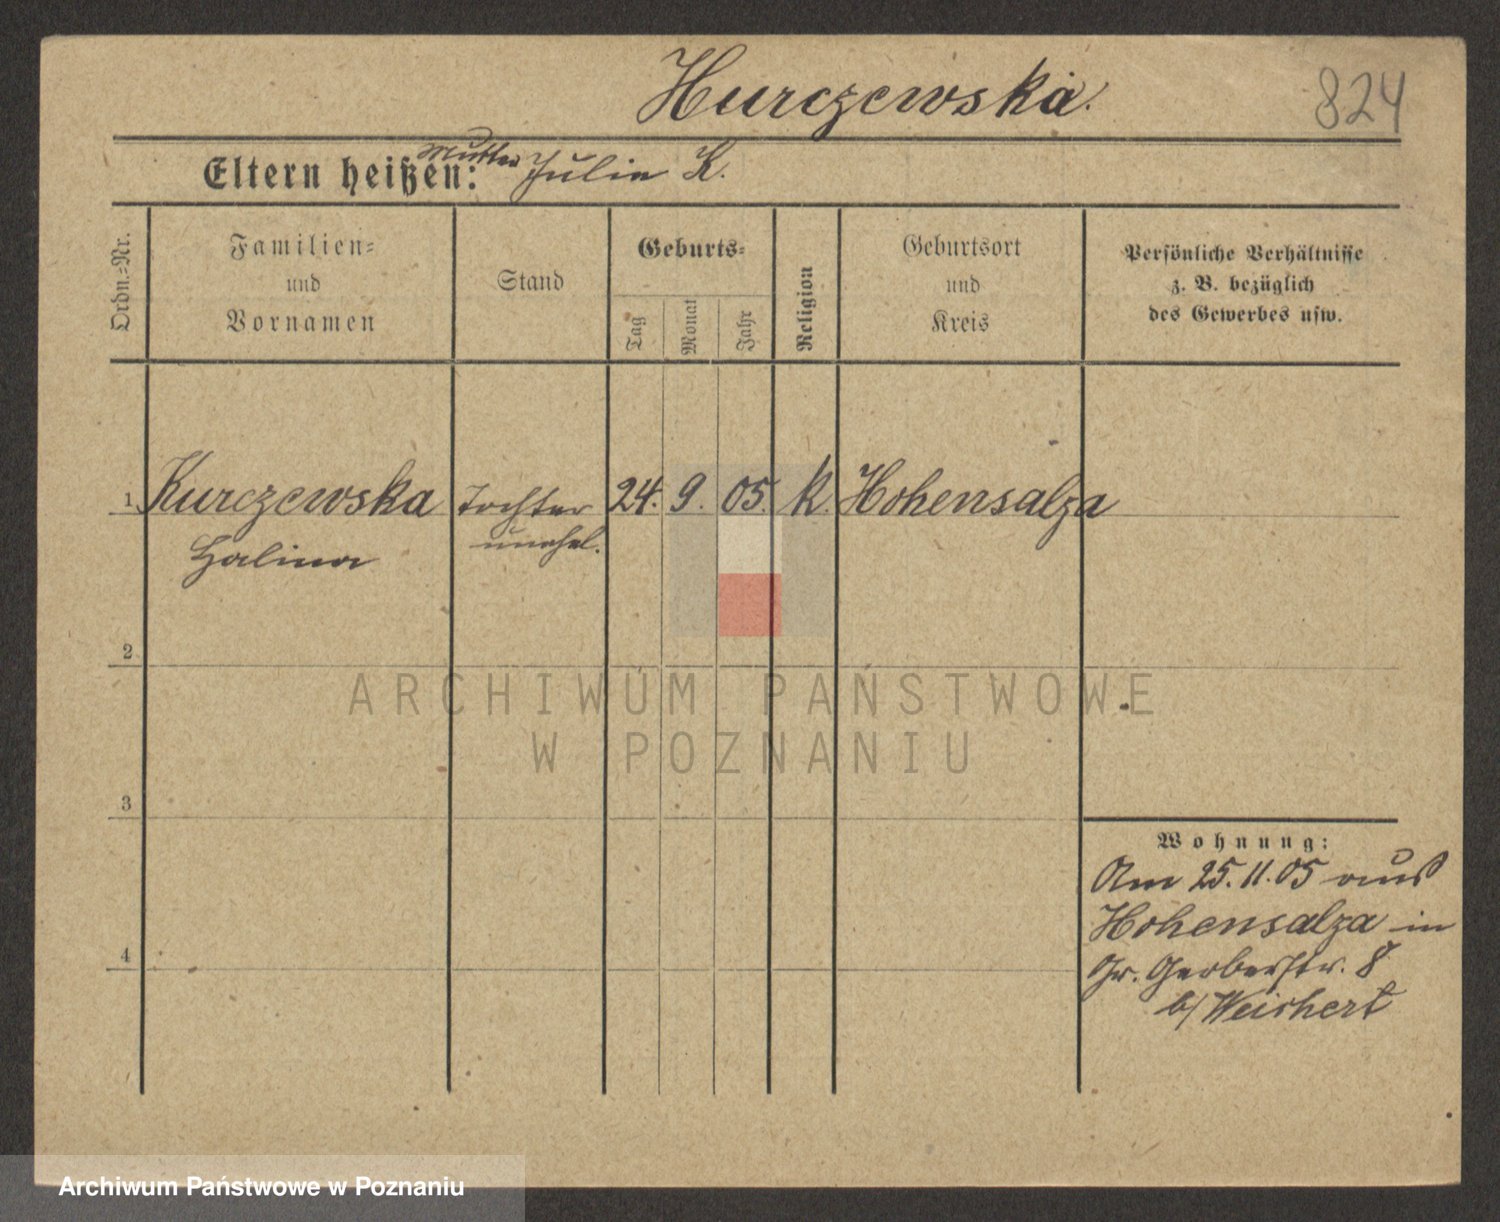 Kurczewska.
824
Mutter
Eltern heißen: Julie K.
Ordn.-Nr.
Familien-
und
Vornamen
Stand
Geburts-
Tag
Monat
Jahr
Religion
Geburtsort
und
Kreis
Persönliche Verhältnisse
z. B. bezüglich
des Gewerbes usw.
1 Kurczewska Tochter 24. 9. 05. k. Hohensalza
Halina unehel.
2
3
4
Wohnung:
Am 25.11.05 aus
Hohensalza in
Gr. Gerberstr. 8
b/ Weichert
ARCHIWUM PAŃSTWOWE
W POZNANIU
Archiwum Państwowe w Poznaniu